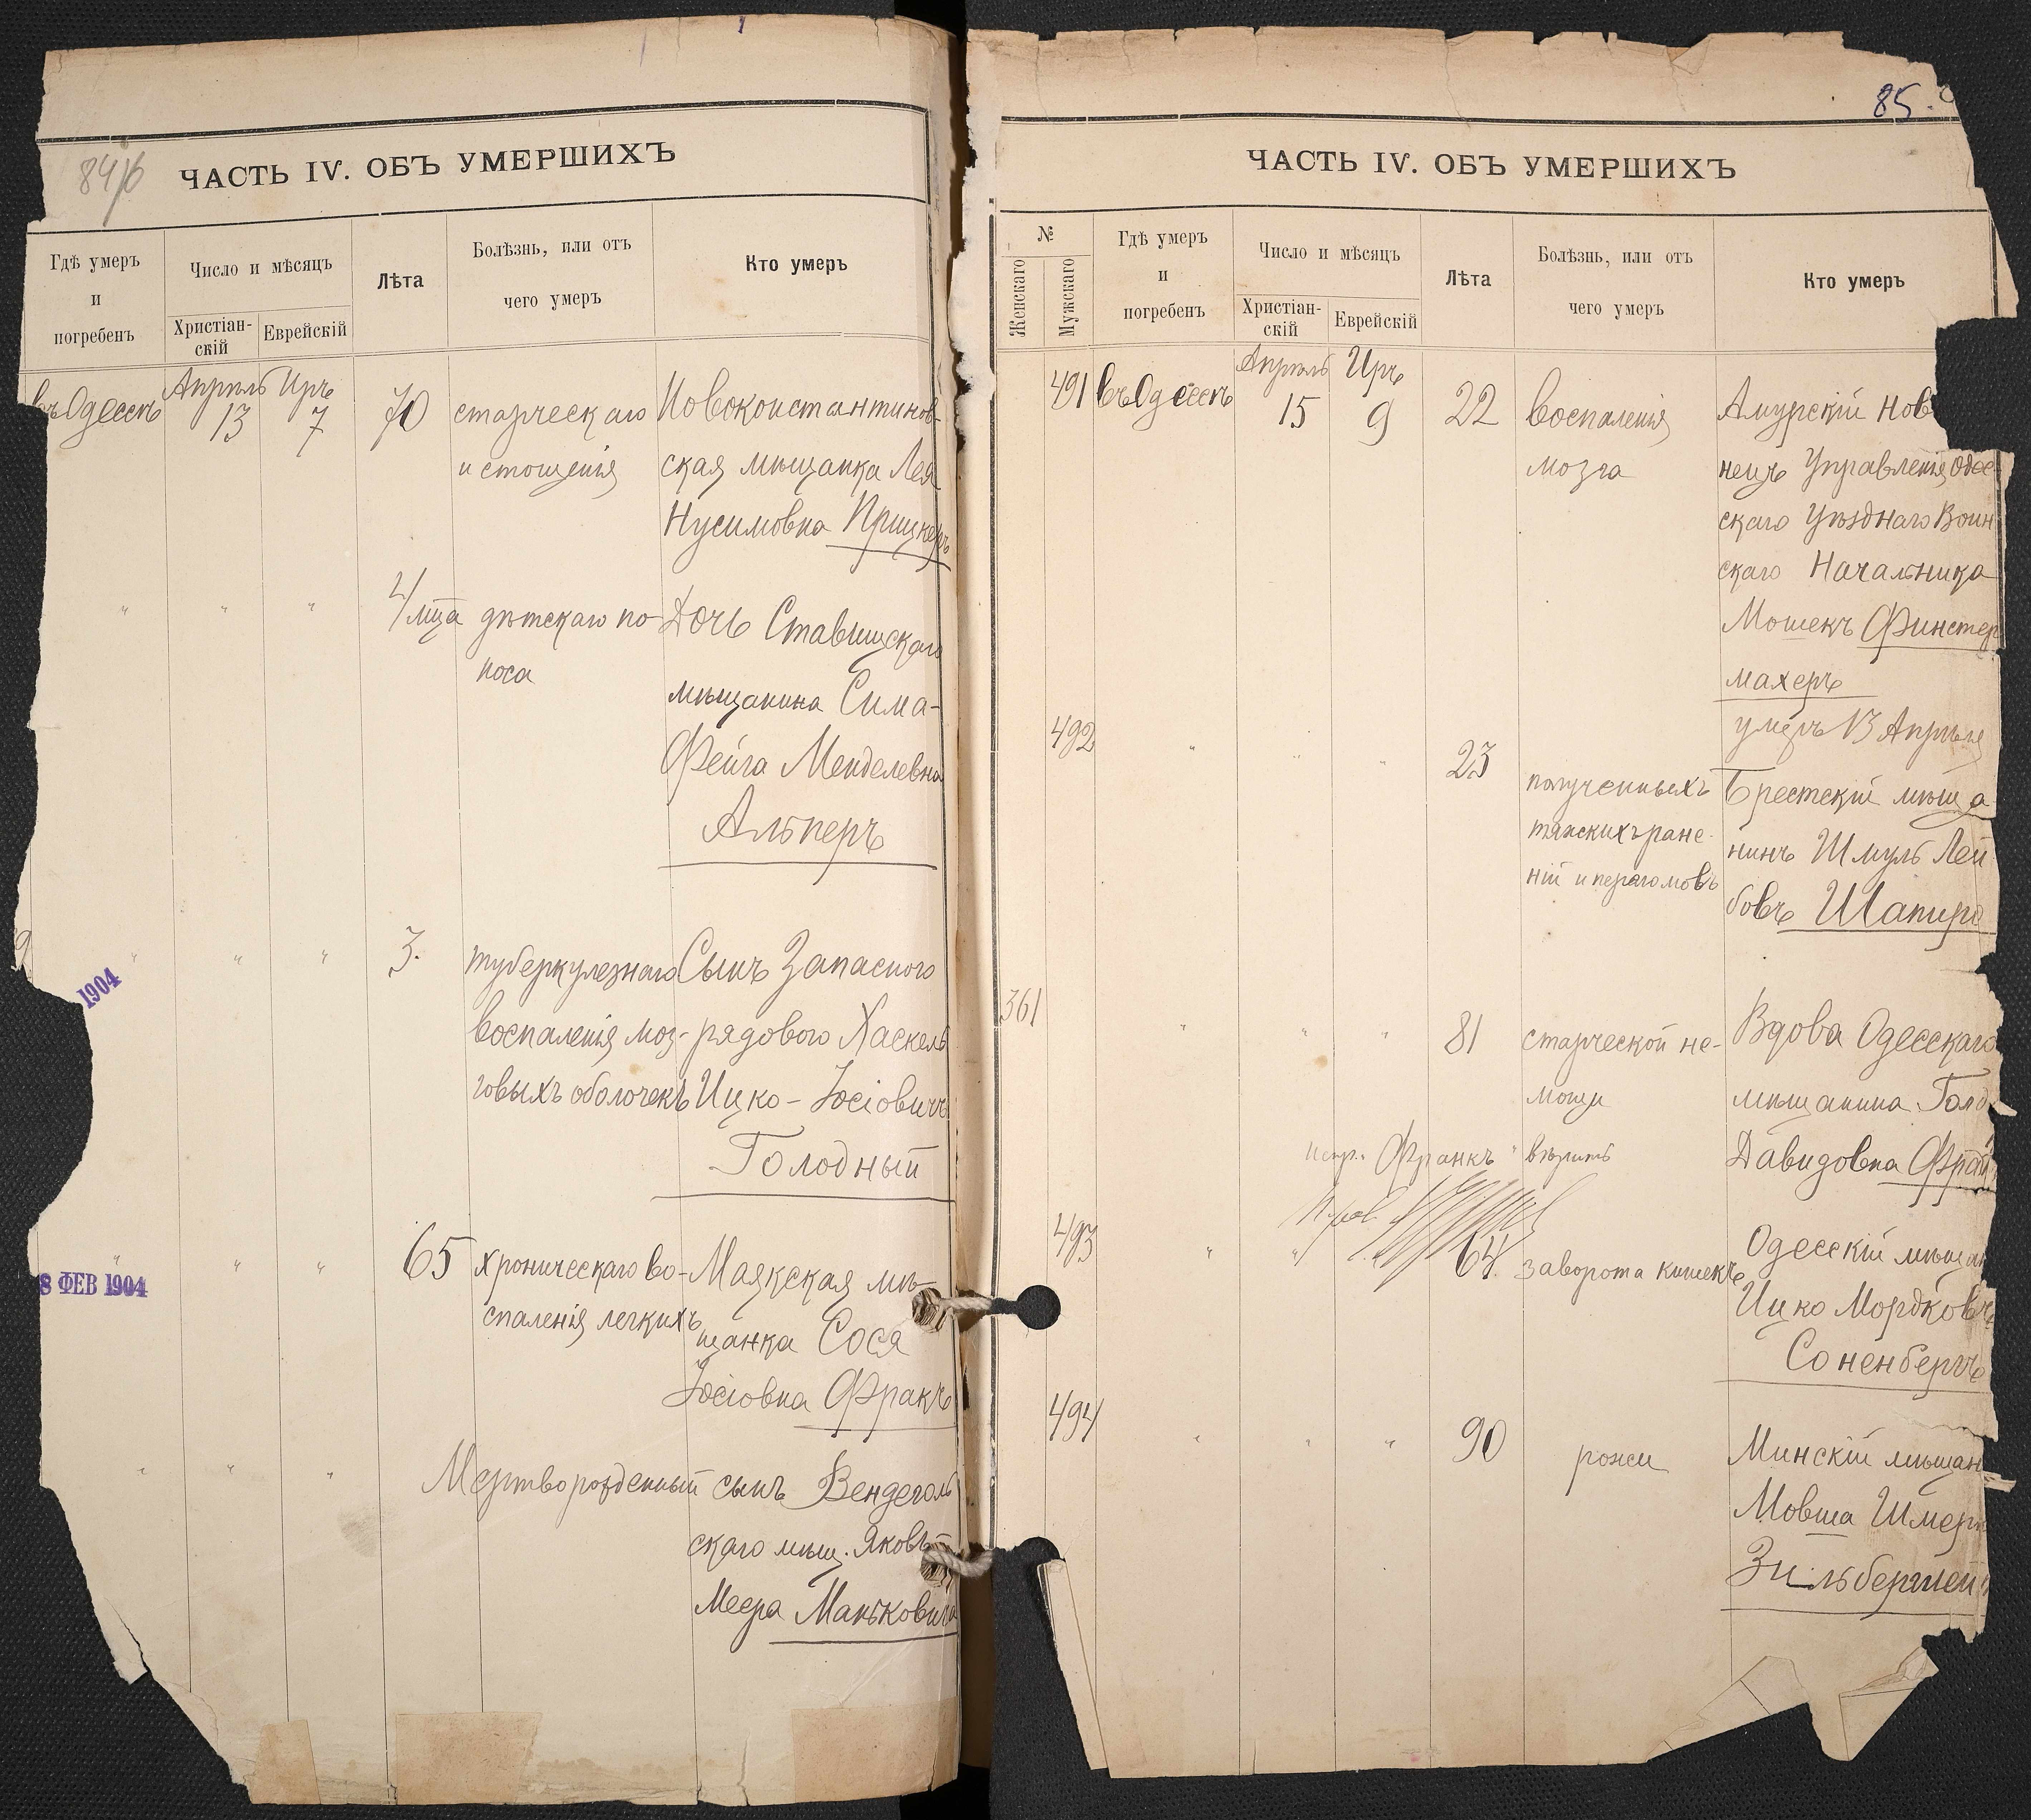 84/б
ЧАСТЬ IV. ОБЪ УМЕРШИХЪ
Гдѣ умеръ
и
погребенъ
Число и мѣсяцъ
Христіан-
скій
Еврейскій
Лѣта
Болѣзнь, или отъ
чего умеръ
Кто умеръ
въ Одессѣ
Апрѣль
13
Иръ
7
70
старческаго
истощенія
Новоконстантинов-
ская мѣщанка Лея
Нусимовна Прицкеръ
" " "
4 мца
дѣтскаго по-
носа
Дочь Ставищскаго
мѣщанина Сима-
Фейга Менделевна
Альперъ
" " "
3.
туберкулезнаго
воспаленія моз-
говыхъ оболочекъ
Сынъ Запасного
рядового Хаскель
Ицко-Іосіовичъ
Голодный
1904
" " "
65
хроническаго во-
спаленія легкихъ
Маякская мѣ-
щанка Сося
Іосіовна Фракъ
8 ФЕВ 1904
" " "
Мертворожденный сынъ Вендеголь
скаго мѣщ. Яковъ
Меера Маньковича
85.
ЧАСТЬ IV. ОБЪ УМЕРШИХЪ
№
Женскаго
Мужскаго
Гдѣ умеръ
и
погребенъ
Число и мѣсяцъ
Христіан-
скій
Еврейскій
Лѣта
Болѣзнь, или отъ
чего умеръ
Кто умеръ
491
въ Одессѣ
Апрѣль
15
Иръ
9
22
воспаленія
мозга
Амурскій нов
нецъ Управленія Одес
скаго Уѣзднаго Воин
скаго Начальника
Мошекъ Финстер
махеръ
умеръ 13 Апрѣля
492
" " "
23
полученныхъ
тяжскихъ ране-
ній и переломовъ
Брестскій мѣща
нинъ Шмуль Лей
бовъ Шапиро
361
" " "
81
старческой не-
мощи
Вдова Одесскаго
мѣщанина Голд
Давидовна Фран
испр. Франкъ " вѣрить
493
" "
64
заворота кишекъ
Одесскій мѣщан
Ицко Мордковъ
Соненбергъ
494
" " "
90
рожи
Минскій мѣщан
Мовша Шмерк
Зильберштей